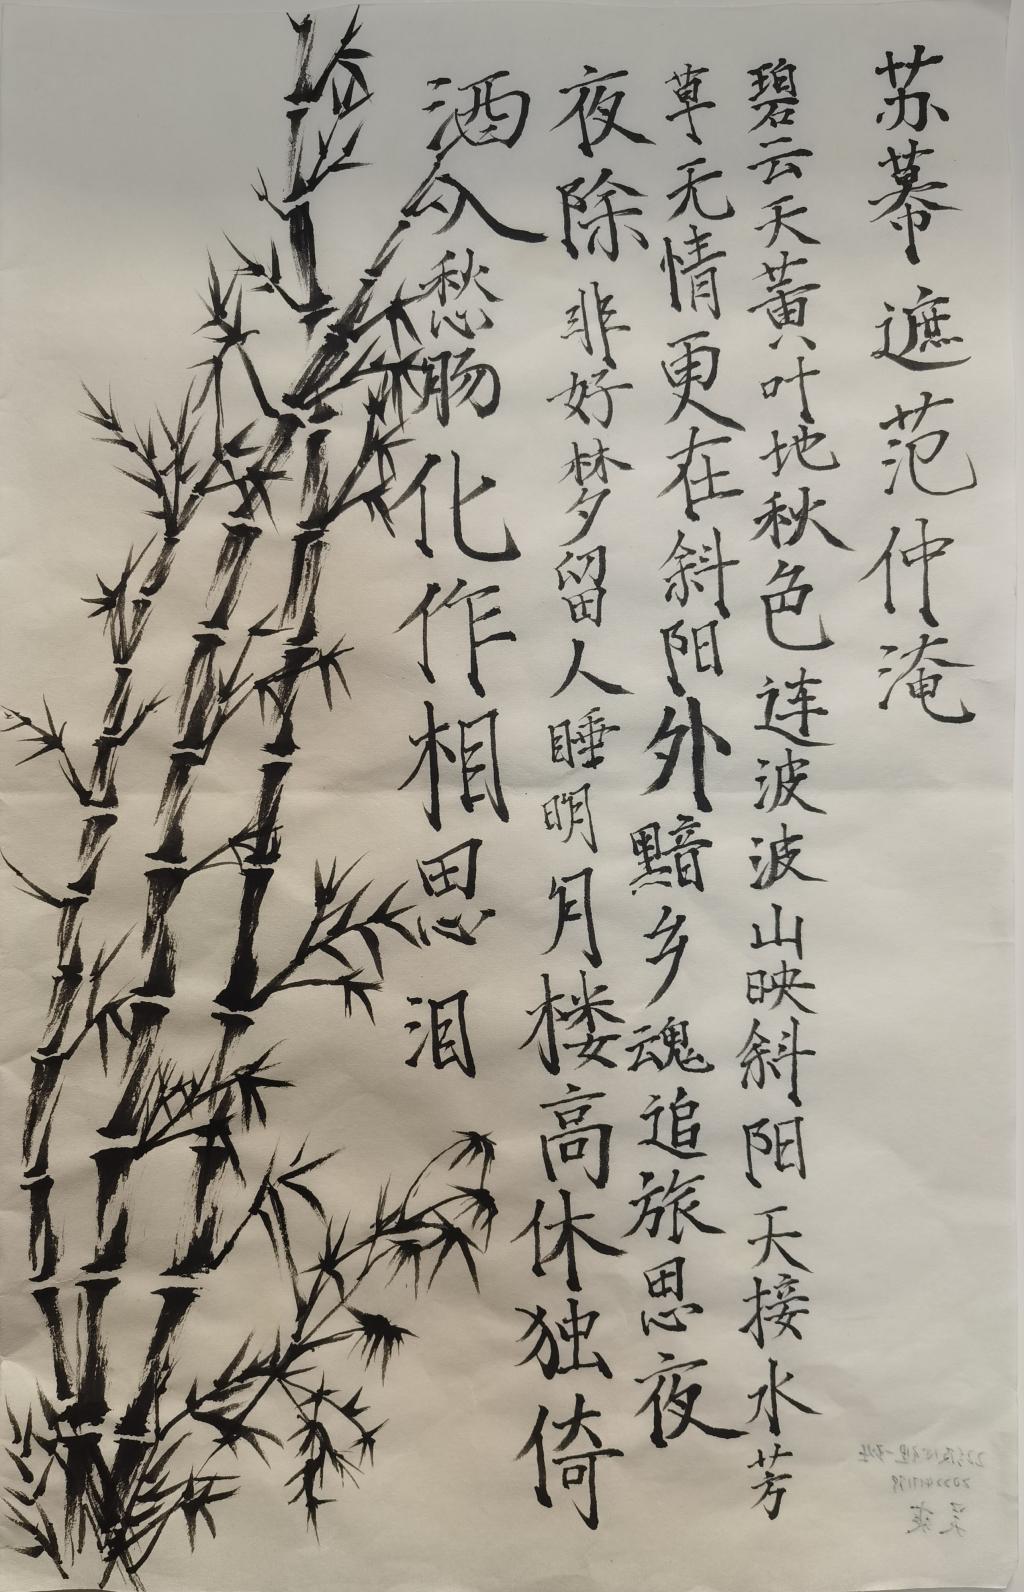 苏幕遮范仲淹
碧云天黄叶地秋色连波波山映斜阳天接水芳
草无情更在斜阳外黯乡魂追旅思夜
夜除非好梦留人睡明月楼高休独倚
酒入愁肠化作相思泪